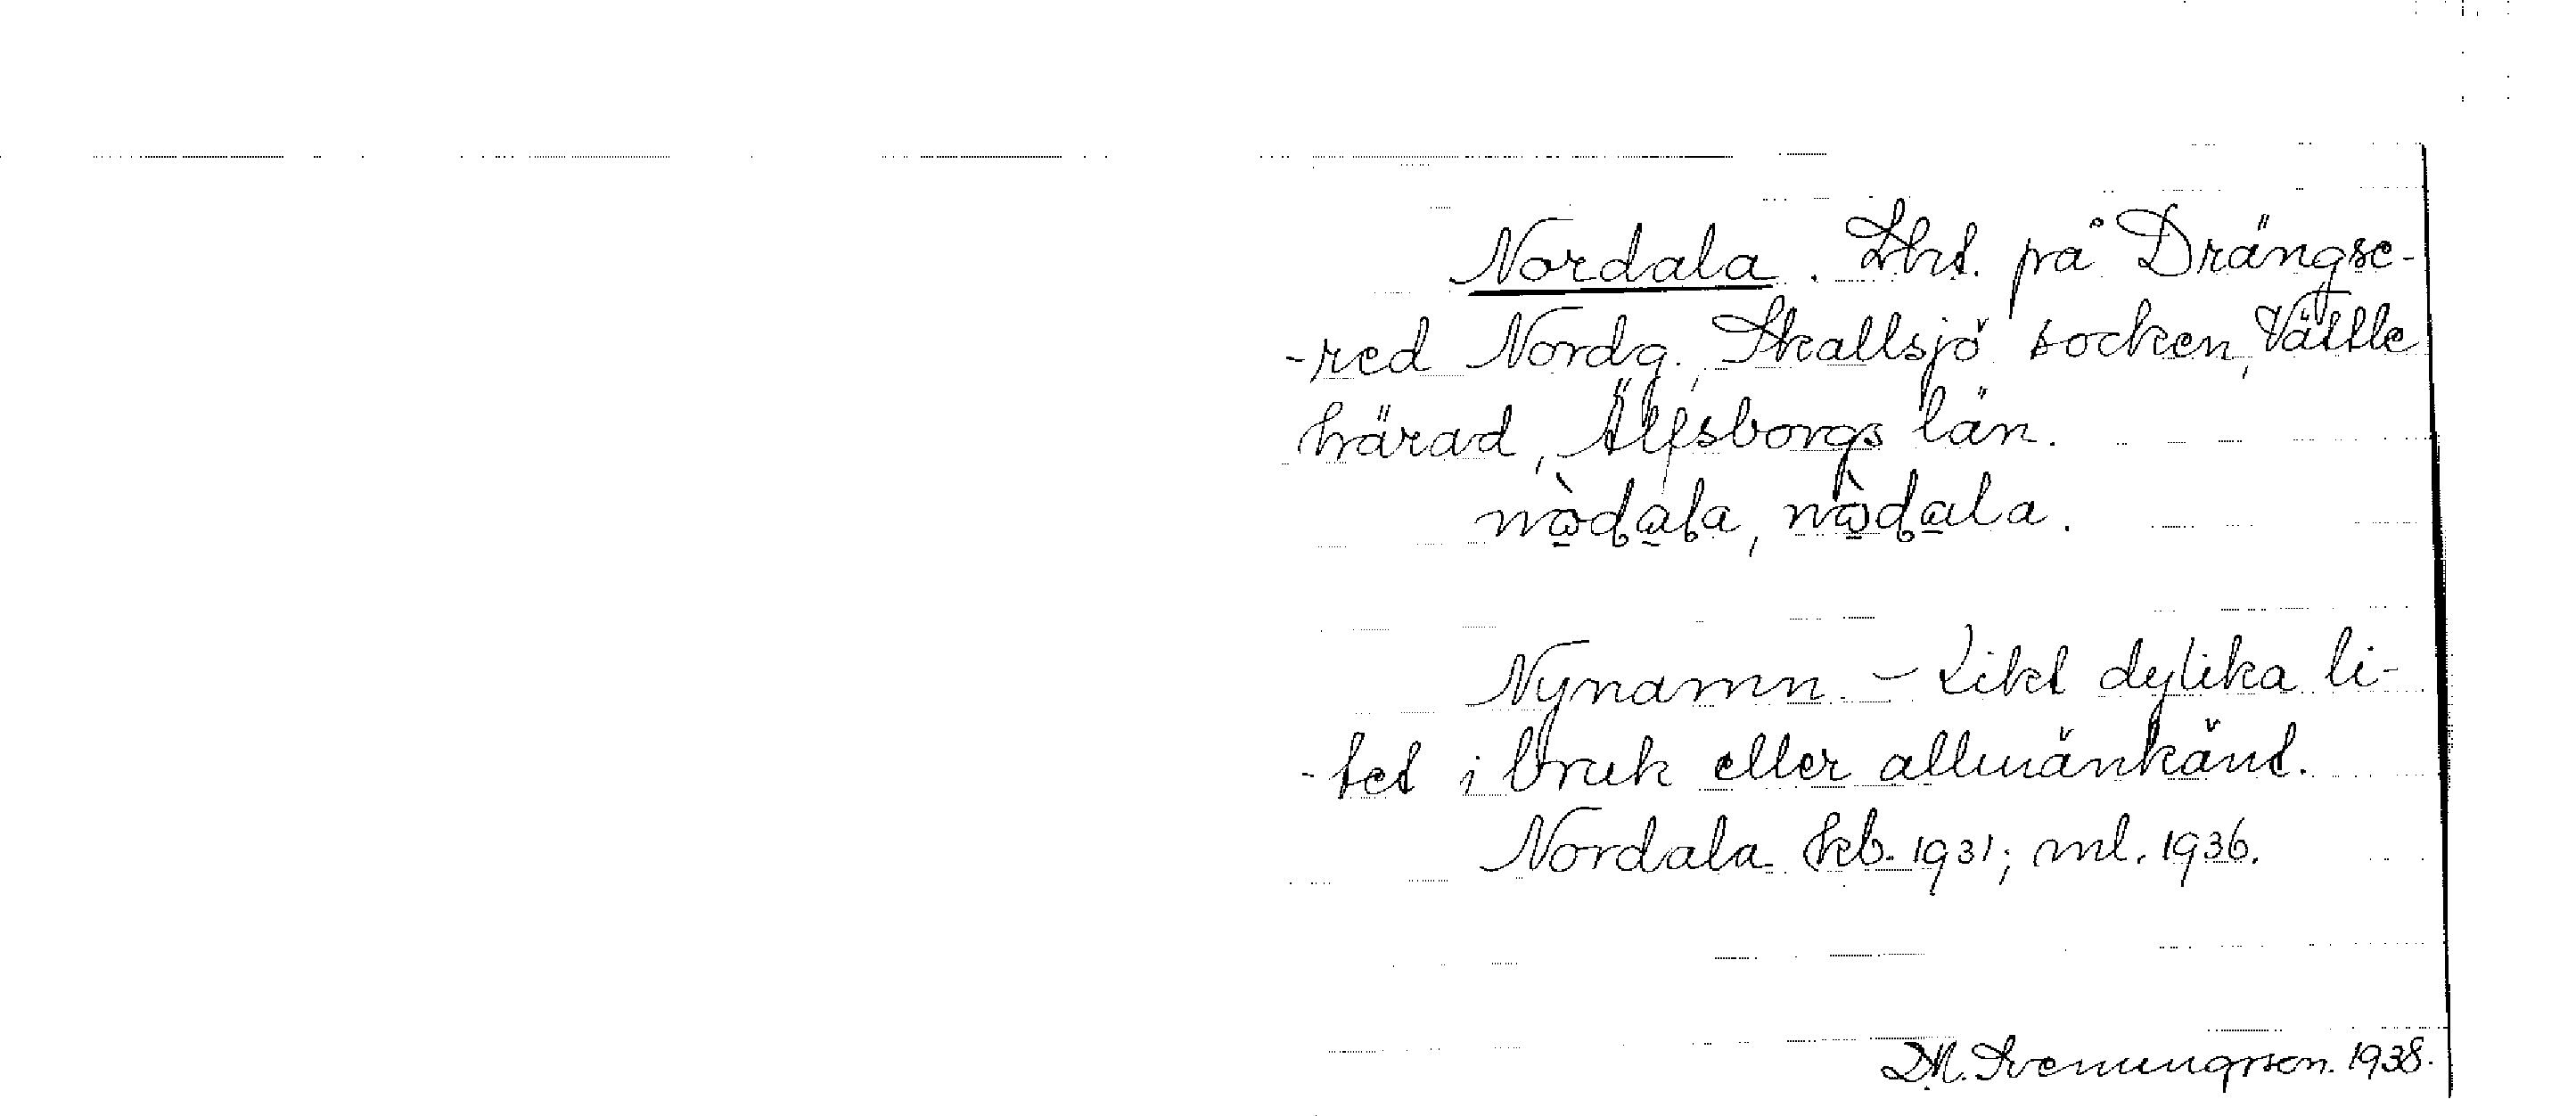 Nordala. Lht. på Drängse-
-red Nordg., Skallsjö socken, Vättle
härad, Älfsborgs län.
nòdala, nòdala.
Nynamn. - Likt dylika li-
-tet i bruk eller allmänkänt.
Nordala kb. 1931; ml. 1936.
D.M. Svenungsson. 1938.